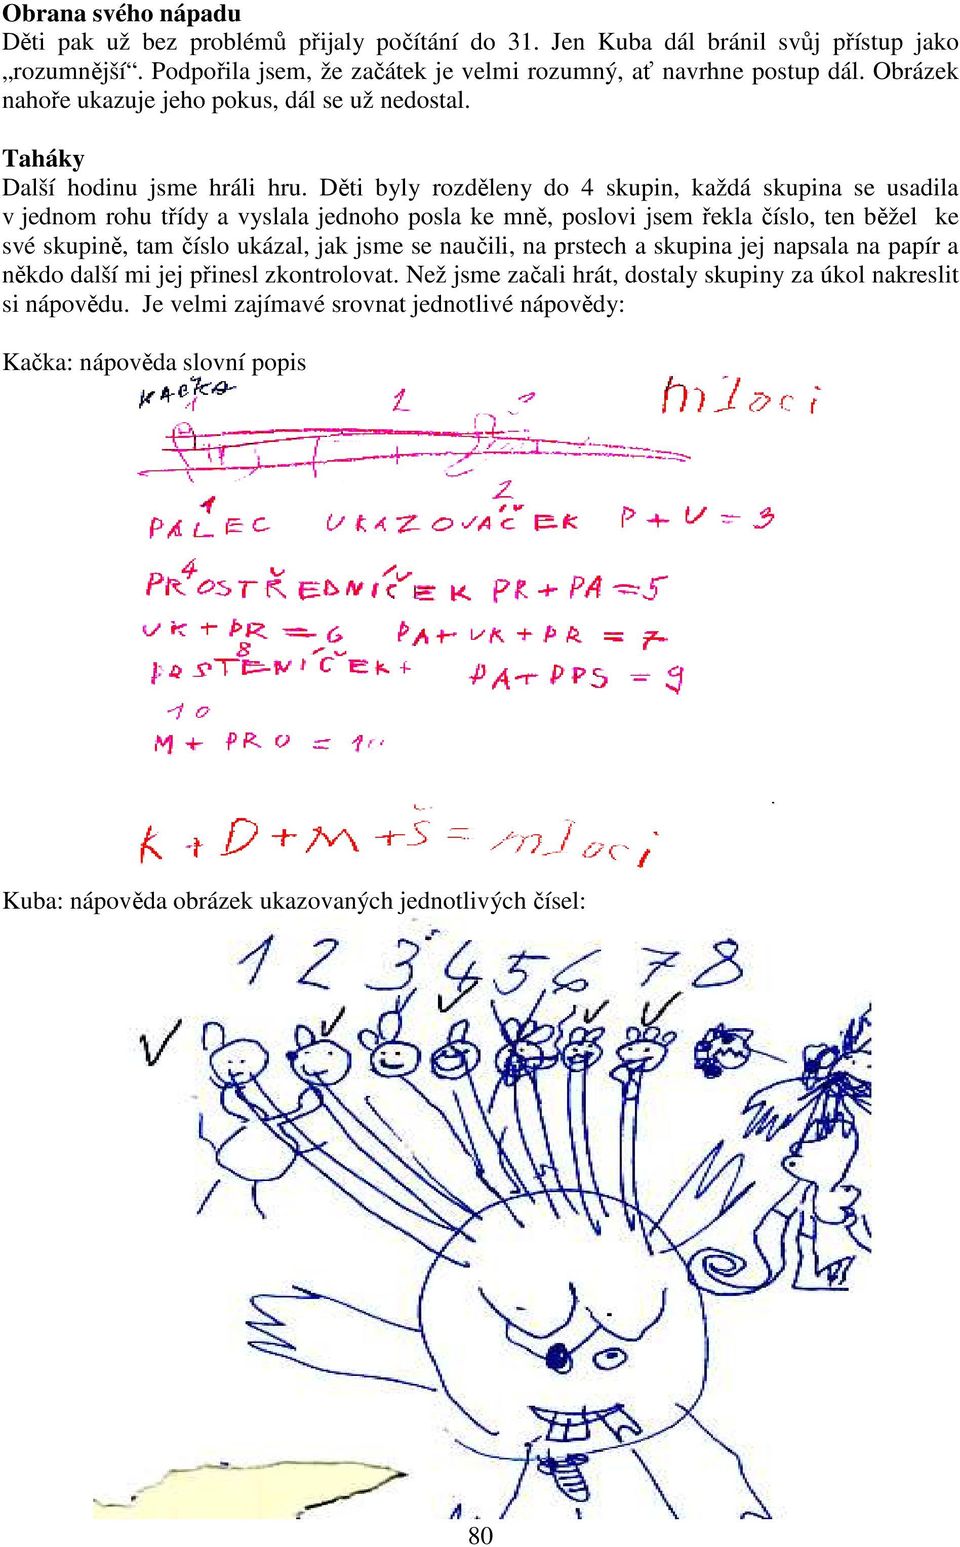 Obrana svého nápadu
Děti pak už bez problémů přijaly počítání do 31. Jen Kuba dál bránil svůj přístup jako
„rozumnější“. Podpořila jsem, že začátek je velmi rozumný, ať navrhne postup dál. Obrázek
nahoře ukazuje jeho pokus, dál se už nedostal.
Taháky
Další hodinu jsme hráli hru. Děti byly rozděleny do 4 skupin, každá skupina se usadila
v jednom rohu třídy a vyslala jednoho posla ke mně, poslovi jsem řekla číslo, ten běžel ke
své skupině, tam číslo ukázal, jak jsme se naučili, na prstech a skupina jej napsala na papír a
někdo další mi jej přinesl zkontrolovat. Než jsme začali hrát, dostaly skupiny za úkol nakreslit
si nápovědu. Je velmi zajímavé srovnat jednotlivé nápovědy:
Kačka: nápověda slovní popis
KAČKA
mloci
1 2
PALEC UKAZOVÁČEK P + U = 3
4
PROSTŘEDNÍČEK PR + PA = 5
UK + PR = 6 PA + UK + PR = 7
8
PRSTENÍČEK + PA + PPS = 9
10
M + PRO = 10
K + D + M + Š = mloci
Kuba: nápověda obrázek ukazovaných jednotlivých čísel:
1 2 3 4 5 6 7 8
80